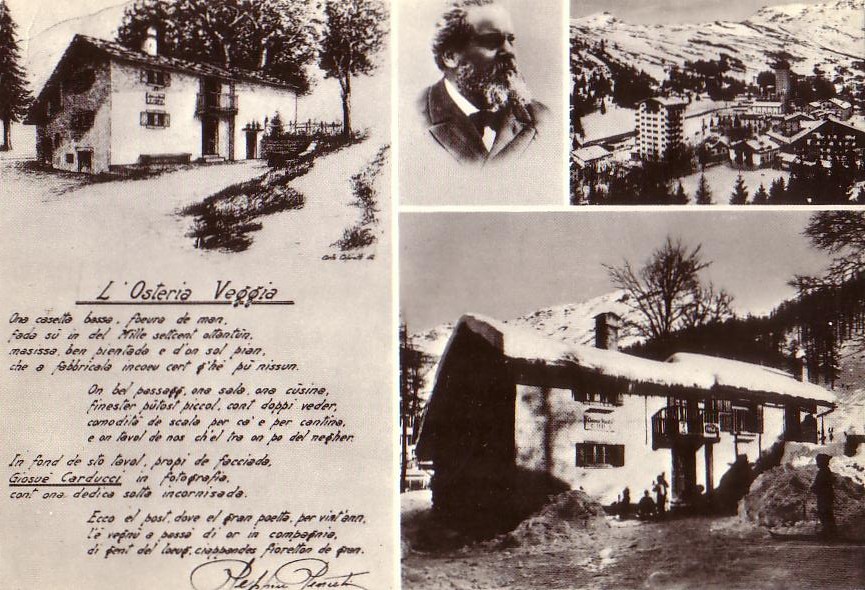 L'Osteria Veggia
Ona casetta bassa, foeura de man,
fada sü in del Mille settcent ottantün,
masissa, ben pientada e d'on sol pian,
che a fabbricala incoeu cert g'he' pü nissun.
On bel passagg, ona sala, ona cüsina,
finester pütost piccol, cont doppi veder,
comodità de scala per ca' e per cantina,
e on tavol de nos ch'el tra on po del negher.
In fond de sto tavol, propi de facciada,
Giosuè Carducci in fotografia,
cont ona dedica sotta incornisada.
Ecco el post, dove el gran poetta, per vint'ann,
l'è vegnü a passà di or in compagnia,
di gent del loeug, ciappandes fioretton de gran.